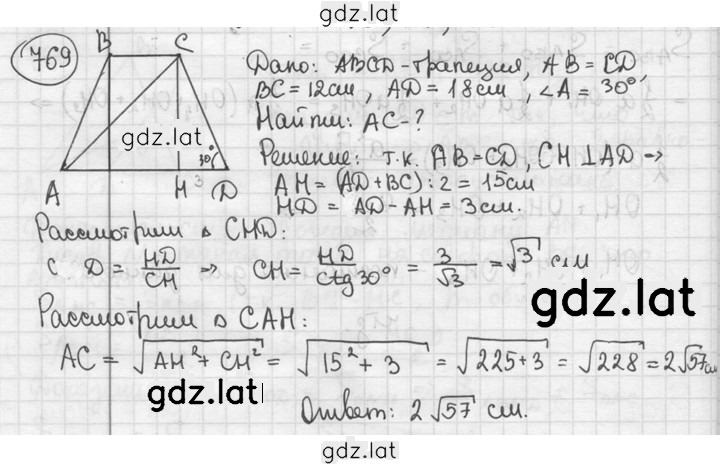 gdz.lat
769
B C
Дано: ABCD-трапеция, AB = CD,
BC = 12см, AD = 18см, ∠A = 30°,
Найти: AC-?
gdz.lat
30°
A H 3 D
Решение: т.к. AB=CD, CH⊥AD →
AH = (AD+BC):2 = 15см
HD = AD-AH = 3см.
Рассмотрим △ CHD:
C D = HD/CH ⇒ CH = HD/ctg30° = 3/√3 = √3 см
gdz.lat
Рассмотрим △ CAH:
AC = √AH²+CH² = √15²+3 = √225+3 = √228 = 2√57см
gdz.lat
Ответ: 2√57 см.
gdz.lat